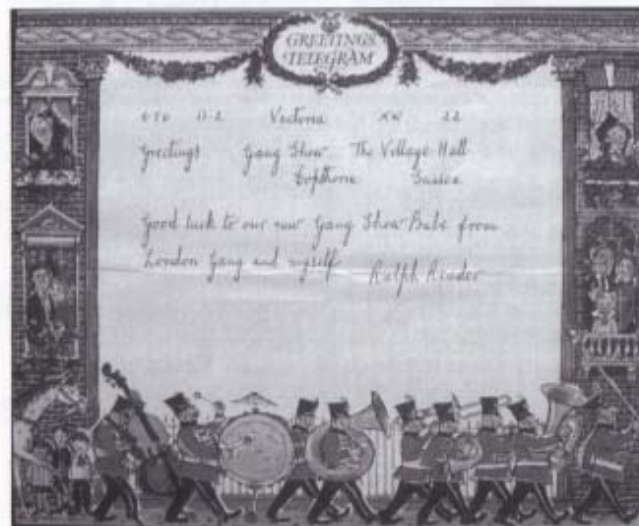 GREETINGS
TELEGRAM
Victoria
Greetings Gang Show The Village Hall
Sussex
Good luck to our new Gang Show Babe from
London Gang and myself
Ralph Reader